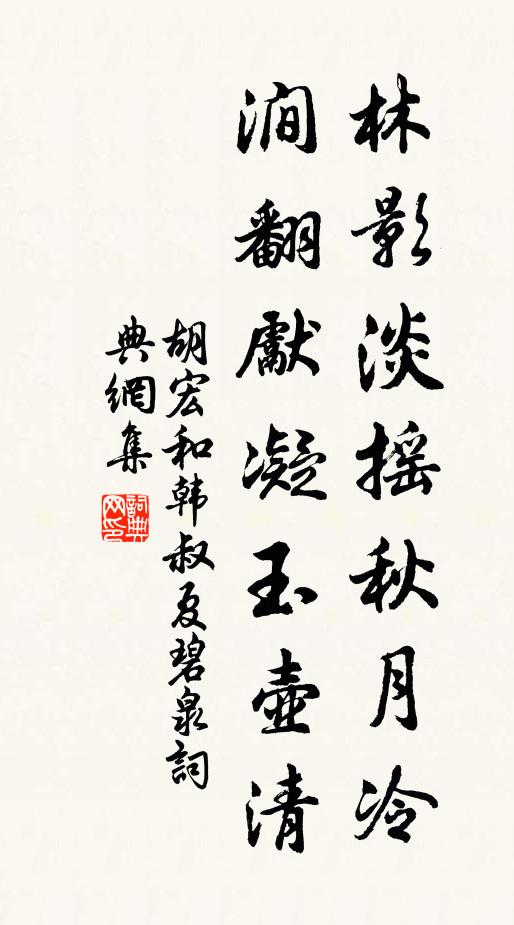 林影淡摇秋月冷
澗翻獻凝玉壺清
胡宏和韩叔夏碧泉詞
典網集
詞典
网印